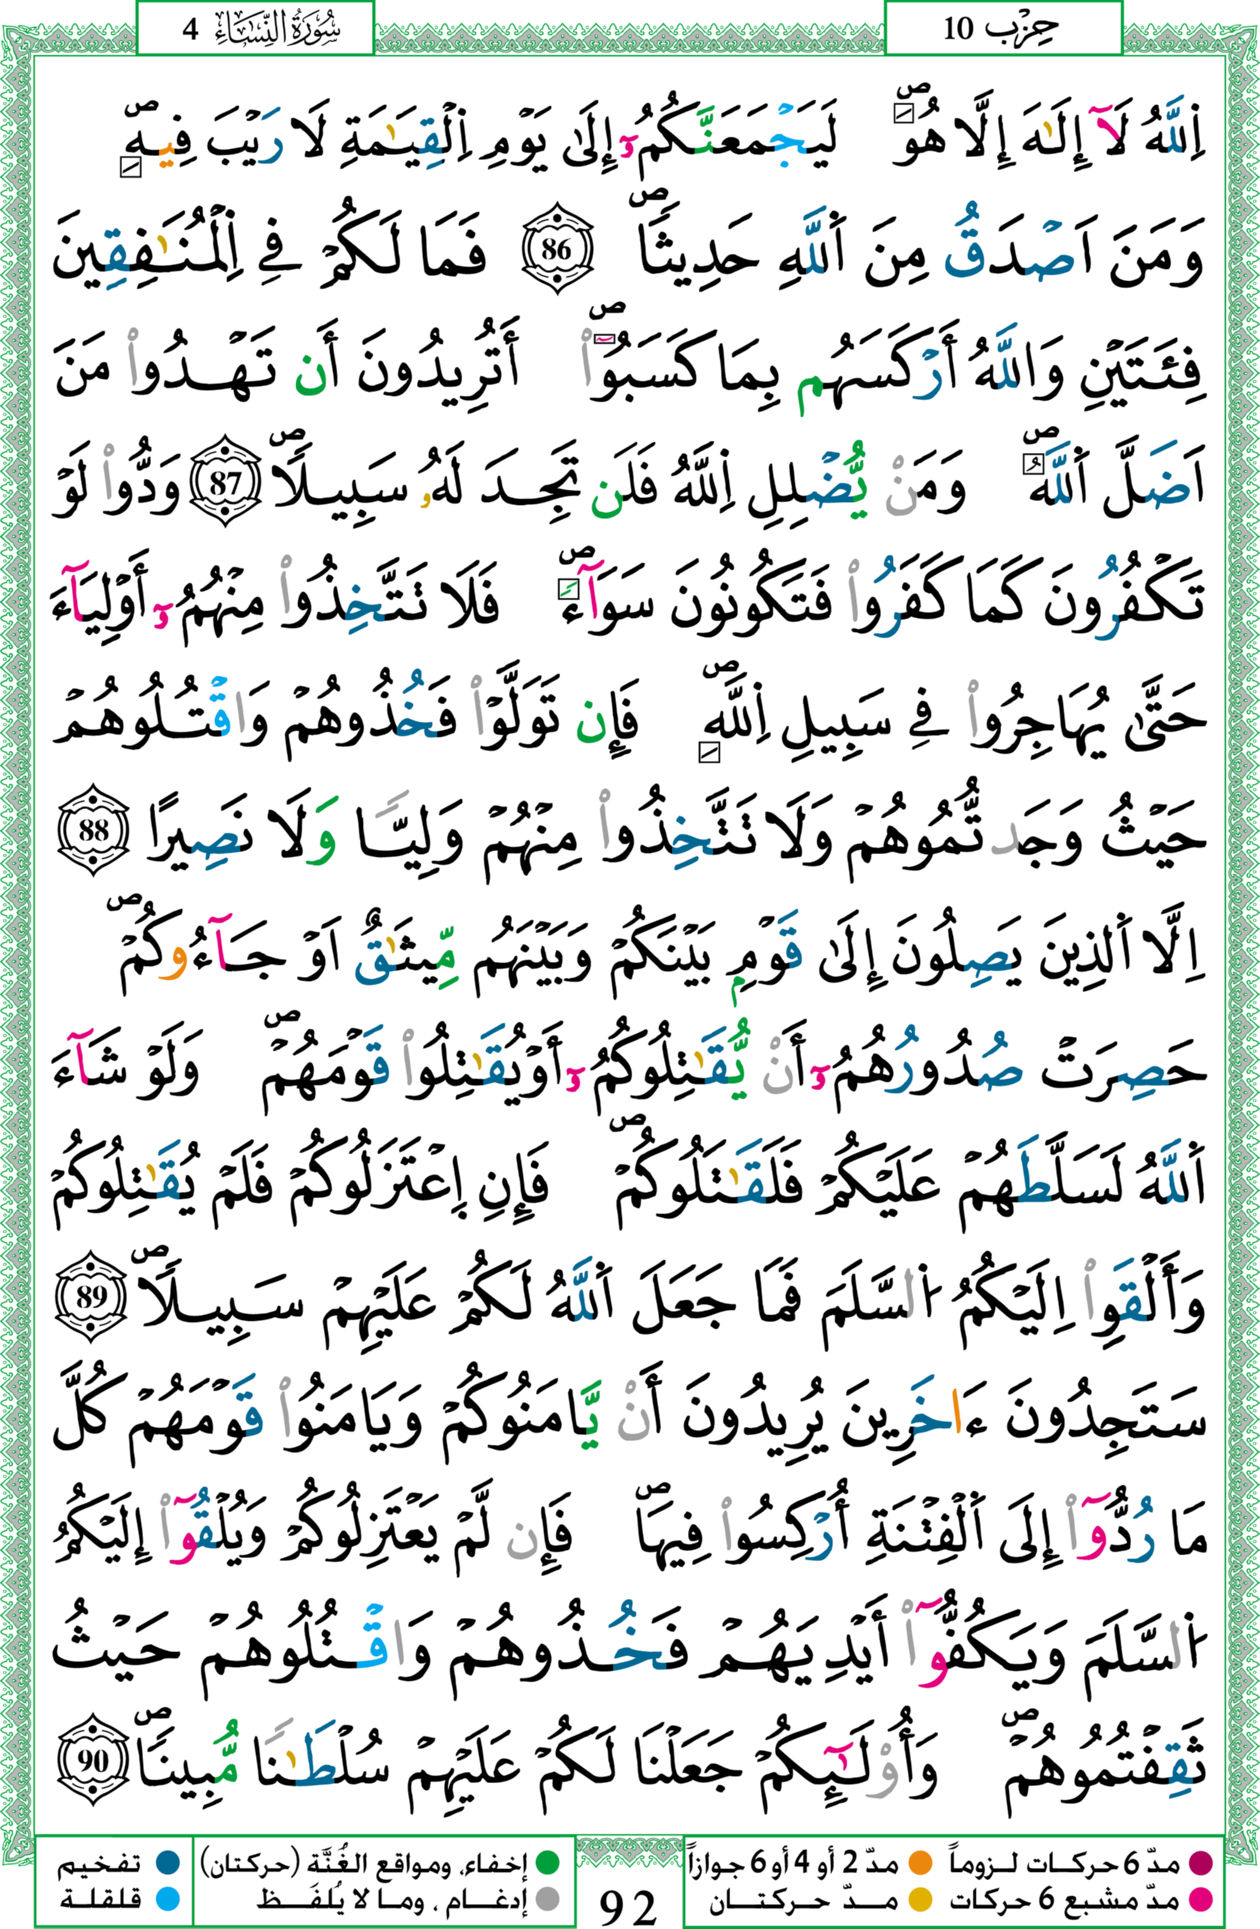 حِزْب 10
سُورَةُ النِّسَاءِ 4
اِ۬للَّهُ لَآ إِلَٰهَ إِلَّا هُوَۖ لَيَجْمَعَنَّكُمُۥٓ إِلَىٰ يَوْمِ اِ۬لْقِيَٰمَةِ لَا رَيْبَ فِيهِۖ
وَمَنَ اَصْدَقُ مِنَ اَ۬للَّهِ حَدِيثاٗۖ 86 فَمَا لَكُمْ فِے اِ۬لْمُنَٰفِقِينَ
فِئَتَيْنِ وَاللَّهُ أَرْكَسَهُم بِمَا كَسَبُوٓاْۖ أَتُرِيدُونَ أَن تَهْدُواْ مَنَ
اَضَلَّ اَ۬للَّهُۖ وَمَنْ يُّضْلِلِ اِ۬للَّهُ فَلَن تَجِدَ لَهُۥ سَبِيلاٗۖ 87 وَدُّواْ لَوْ
تَكْفُرُونَ كَمَا كَفَرُواْ فَتَكُونُونَ سَوَآءٗۖ فَلَا تَتَّخِذُواْ مِنْهُمُۥٓ أَوْلِيَآءَ
حَتَّىٰ يُهَاجِرُواْ فِے سَبِيلِ اِ۬للَّهِۖ فَإِن تَوَلَّوْاْ فَخُذُوهُمْ وَاقْتُلُوهُمْ
حَيْثُ وَجَدتُّمُوهُمْ وَلَا تَتَّخِذُواْ مِنْهُمْ وَلِيّاٗ وَلَا نَصِيراً 88
اِلَّا اَ۬لذِينَ يَصِلُونَ إِلَىٰ قَوْمِۢ بَيْنَكُمْ وَبَيْنَهُم مِّيثَٰقٌ اَوْ جَآءُوكُمْۖ
حَصِرَتْ صُدُورُهُمُۥٓ أَنْ يُّقَٰتِلُوكُمُۥٓ أَوْ يُقَٰتِلُواْ قَوْمَهُمْۖ وَلَوْ شَآءَ
اَ۬للَّهُ لَسَلَّطَهُمْ عَلَيْكُمْ فَلَقَٰتَلُوكُمْۖ فَإِنِ اِ۪عْتَزَلُوكُمْ فَلَمْ يُقَٰتِلُوكُمْ
وَأَلْقَوِاْ اِلَيْكُمُ اُ۬لسَّلَمَ فَمَا جَعَلَ اَ۬للَّهُ لَكُمْ عَلَيْهِمْ سَبِيلاٗۖ 89
سَتَجِدُونَ ءَاخَرِينَ يُرِيدُونَ أَنْ يَّامَنُوكُمْ وَيَامَنُواْ قَوْمَهُمْ كُلَّ
مَا رُدُّوٓاْ إِلَى اَ۬لْفِتْنَةِ أُرْكِسُواْ فِيهَاۖ فَإِن لَّمْ يَعْتَزِلُوكُمْ وَيُلْقُوٓاْ إِلَيْكُمُ
اُ۬لسَّلَمَ وَيَكُفُّوٓاْ أَيْدِيَهُمْ فَخُذُوهُمْ وَاقْتُلُوهُمْ حَيْثُ
ثَقِفْتُمُوهُمْۖ وَأُوْلَٰٓئِكُمْ جَعَلْنَا لَكُمْ عَلَيْهِمْ سُلْطَٰناٗ مُّبِيناٗۖ 90
مدّ 6 حركات لـزوماً مدّ 2 أو 4 أو 6 جوازاً إخفاء، ومواقع الغُنَّة (حركتان) تفخيم
مدّ مشبع 6 حركات مـدّ حـركتــان إدغـام ، ومـا لا يُلفَـظ قلقلة
92